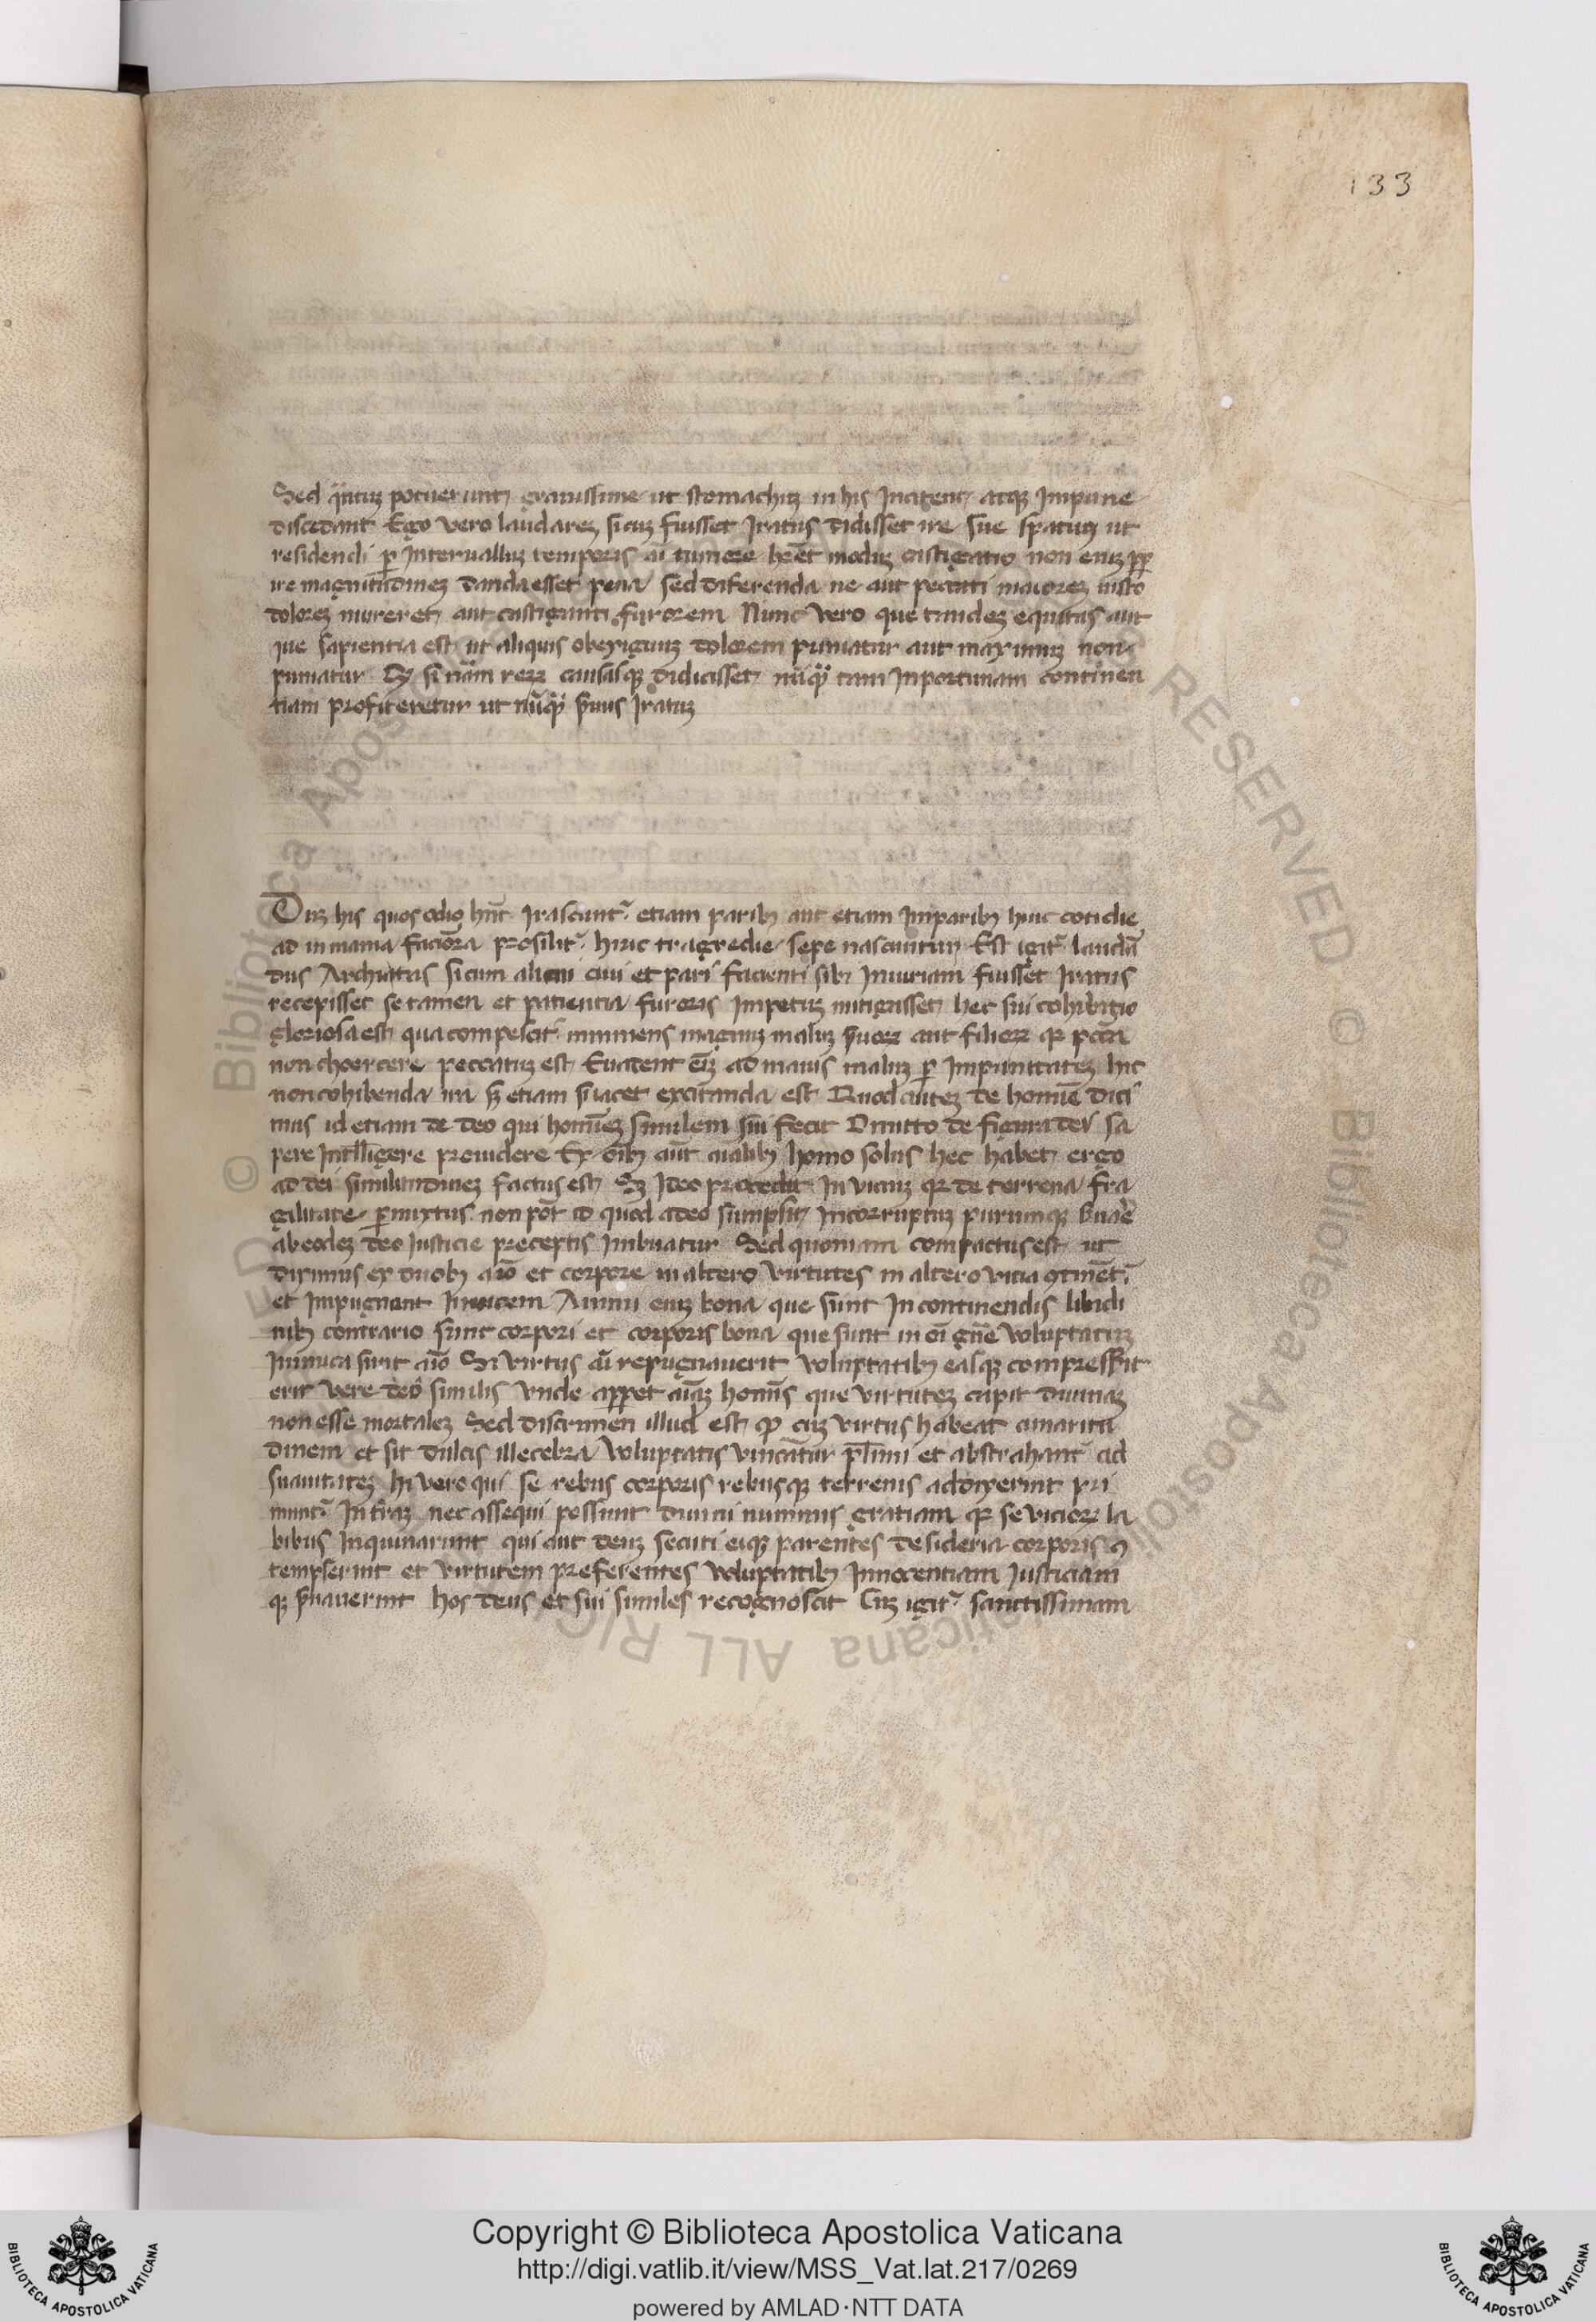 133
Sed q̈ntuꝫ potuerunt grauissime ut stomachuꝫ in his Incitent atqꝫ Impune
discedant Ego vero laudareꝫ si cuꝫ fuisset Iratus didisset ire sue spatiuꝫ ut
residenti ꝑ Interualluꝫ temporis aī tumore hēt̄ moduꝫ castigatio non eniꝫ ꝓꝑ
ire magnitudineꝫ danda esset pena sed diferenda ne aut peccati maioreꝫ iusto
doloreꝫ inureret aut castiganti furorem Nunc vero que tandeꝫ equitas aut
que sapientia est ut aliquis ob exiguuꝫ dolorem puniatur aut maximuꝫ non
puniatur Qꝫ si nām reꝝ causasqꝫ didicisset nūqꝫ̈ tam Inportunam continen
tiam profiteretur ut nūqꝫ̈ suus Iratuꝫ
Cuꝫ his quos odio hn̄t Irascunt᷑ etiam paribꝫ aut etiam Imparibꝫ hinc cotidie
ad in mania faciora prosilit᷑ hinc tragredie sepe nascuntur Est igit᷑ laudā
dus Architas si cum alicui ciui et pari facienti sibi Iniuriam fuisset Iratus
recepisset se tamen et patientia furoris Impetuꝫ mitigasset hec sui cohibitio
gloriosa est qua compescit᷑ inminens magnuꝫ maluꝫ suoꝝ aut filioꝝ qꝛ pcc̄a
non choercere peccatuꝫ est Euadent eīꝫ ad maius maluꝫ ꝑ Impunitateꝫ hic
non cohibenda ira sꝫ etiam si iacet excitanda est Quod auteꝫ de homīe dici
mus id etiam de deo qui homīeꝫ similem sui fecit Omitto de figura dei sa
pere Intlligere prouidere Ex oībꝫ aūt aialibꝫ homo solus hec habet ergo
ad dei similitudineꝫ factus est Sꝫ Ideo procedit In viciuꝫ qꝛ de terrena fra
gilitate ꝑmixtus non pōt id quod a deo sumpsit Incorruptuꝫ purumqꝫ suaē
ab eodeꝫ deo Iusticie preceptis Imbuatur Sed quoniam compactus est ut
diximus ex duobꝫ aīo et corpore in altero virtutes in altero vitia ꝯtinēt᷑
et Impugnant Inuicem Animi eniꝫ bona que sunt In continendis libidi
nibꝫ contrario sunt corpori et corporis bona que sunt in oī gn̄e voluptatuꝫ
Inimica sunt aīo Si virtus aī repugnauerit voluptatibꝫ easqꝫ compresserit
erit vere deo similis vnde apꝑet aīaꝫ homīs que virtuteꝫ capit diuinaꝫ
non esse mortaleꝫ Sed discrimen illud est ꝙ cuꝫ virtus habeat amaritu
dinem et sit dulcis illecebra voluptatis vincātur pl̄imi et abstrahant᷑ ad
suauitateꝫ hi vero qui se rebus corporis rebusqꝫ terrenis addixerint pri
munt᷑ In tr̄aꝫ nec assequi possunt diuini numinis gratiam qꝛ se vicioꝝ la
bibus Inquinarunt qui aut deuꝫ secuti eiqꝫ parentes desideria corporis ꝯ
tempserint et virtutem preferentes voluptatibꝫ Innocentiam Iusticiam
qꝫ s̄uauerint hos deus et sui similes recognoscit Cuꝫ igit᷑ sanctissimam
Copyright © Biblioteca Apostolica Vaticana
http://digi.vatlib.it/view/MSS_Vat.lat.217/0269
powered by AMLAD·NTT DATA
BIBLIOTECA APOSTOLICA VATICANA
BIBLIOTECA APOSTOLICA VATICANA